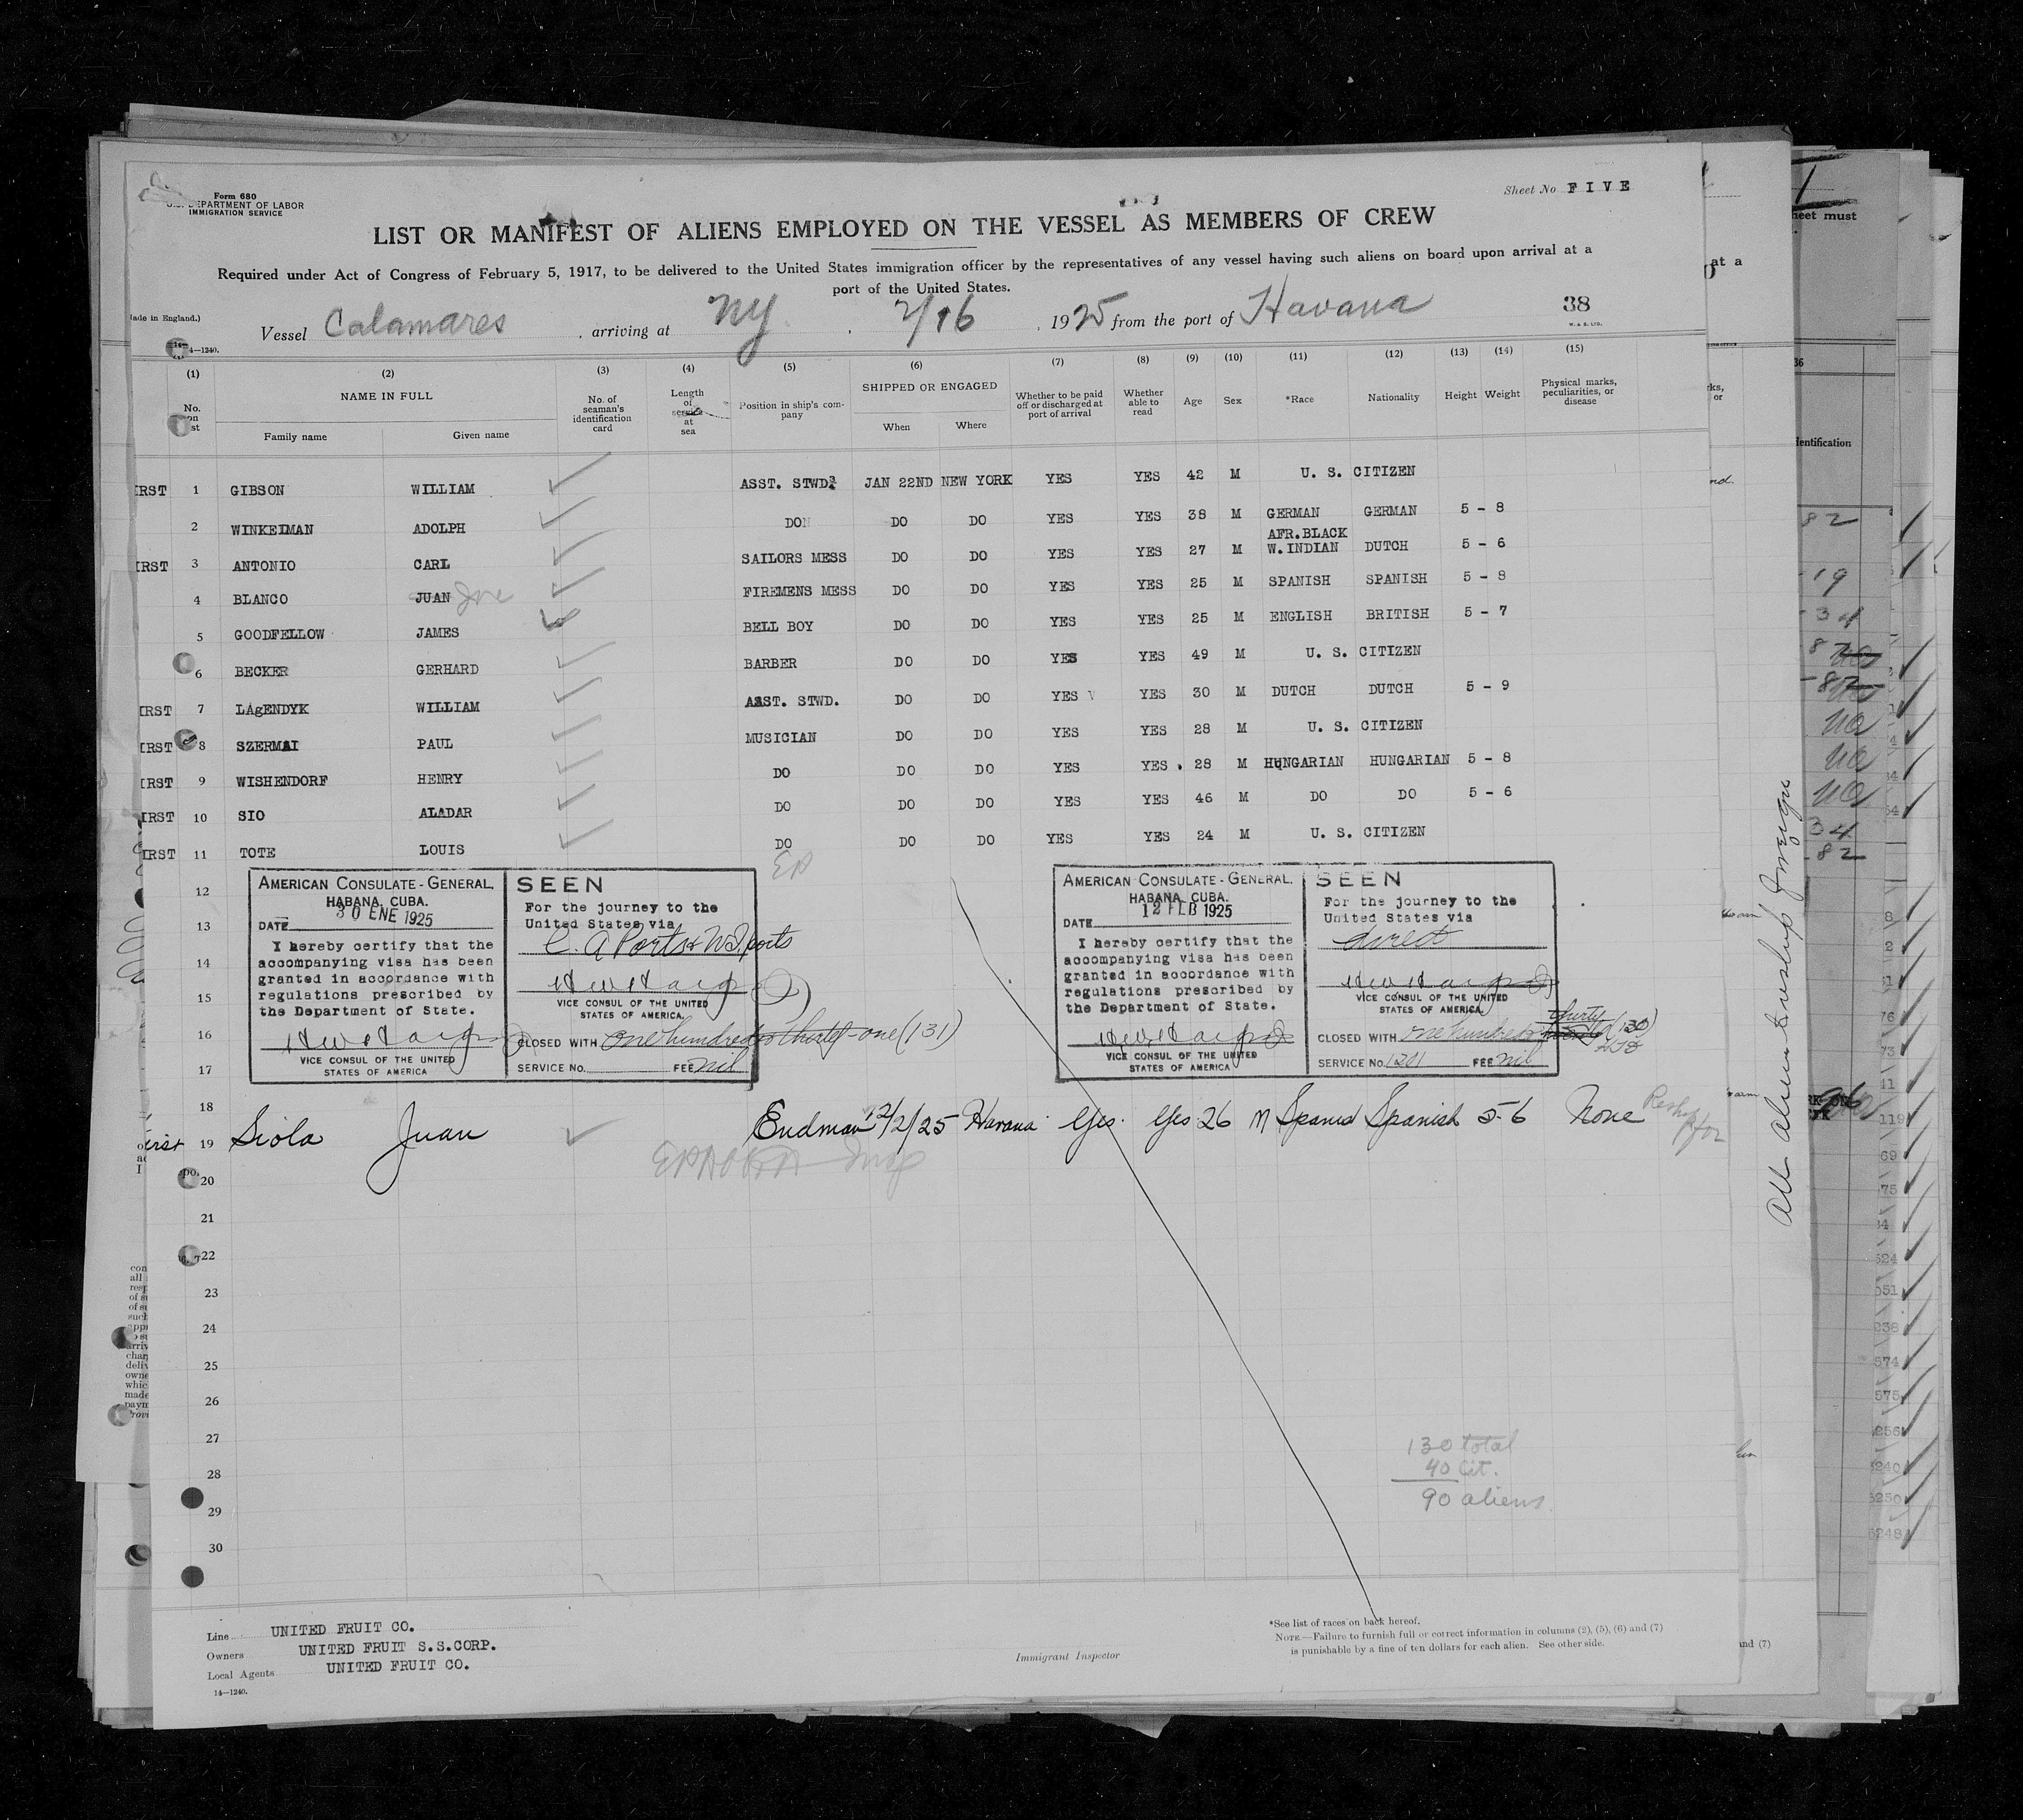 Form 680
U.S. DEPARTMENT OF LABOR
IMMIGRATION SERVICE
Sheet No FIVE
LIST OR MANIFEST OF ALIENS EMPLOYED ON THE VESSEL AS MEMBERS OF CREW
Required under Act of Congress of February 5, 1917, to be delivered to the United States immigration officer by the representatives of any vessel having such aliens on board upon arrival at a
port of the United States.
Vessel Calamares, arriving at NY, 2/16, 1925 from the port of Havana
38
14-1240.
(1) (2) (3) (4) (5) (6) (7) (8) (9) (10) (11) (12) (13) (14) (15)
NAME IN FULL
Family name Given name
No. of seaman's identification card
Length of service at sea
Position in ship's company
SHIPPED OR ENGAGED
When Where
Whether to be paid off or discharged at port of arrival
Whether able to read
Age Sex *Race Nationality Height Weight
Physical marks, peculiarities, or disease
IRST 1 GIBSON WILLIAM ASST. STWD. JAN 22ND NEW YORK YES YES 42 M U. S. CITIZEN
2 WINKELMAN ADOLPH DO DO DO YES YES 38 M GERMAN GERMAN 5 - 8
IRST 3 ANTONIO CARL SAILORS MESS DO DO YES YES 27 M AFR.BLACK W.INDIAN DUTCH 5 - 6
4 BLANCO JUAN Joe FIREMENS MESS DO DO YES YES 25 M SPANISH SPANISH 5 - 8
5 GOODFELLOW JAMES BELL BOY DO DO YES YES 25 M ENGLISH BRITISH 5 - 7
6 BECKER GERHARD BARBER DO DO YES YES 49 M U. S. CITIZEN
IRST 7 LAGENDYK WILLIAM ASST. STWD. DO DO YES YES 30 M DUTCH DUTCH 5 - 9
IRST 8 SZERMAI PAUL MUSICIAN DO DO YES YES 28 M U. S. CITIZEN
IRST 9 WISHENDORF HENRY DO DO DO YES YES 28 M HUNGARIAN HUNGARIAN 5 - 8
IRST 10 SIO ALADAR DO DO DO YES YES 46 M DO DO 5 - 6
IRST 11 TOTE LOUIS DO DO DO YES YES 24 M U. S. CITIZEN
12
13
14
15
16
17
18
AMERICAN CONSULATE-GENERAL,
HABANA, CUBA.
DATE 30 ENE 1925
I hereby certify that the
accompanying visa has been
granted in accordance with
regulations prescribed by
the Department of State.
VICE CONSUL OF THE UNITED
STATES OF AMERICA
SEEN
For the journey to the
United States via
C. A Ports & W.I. ports
VICE CONSUL OF THE UNITED
STATES OF AMERICA.
CLOSED WITH one hundred & thirty-one (131)
SERVICE No. FEE nil
AMERICAN CONSULATE-GENERAL,
HABANA, CUBA.
DATE 12 FEB 1925
I hereby certify that the
accompanying visa has been
granted in accordance with
regulations prescribed by
the Department of State.
VICE CONSUL OF THE UNITED
STATES OF AMERICA
SEEN
For the journey to the
United States via
direct
VICE CONSUL OF THE UNITED
STATES OF AMERICA
CLOSED WITH one hundred thirty (130)
SERVICE No. 1201 FEE nil
irst 19 Siola Juan 12/2/25 Havana Yes. Yes 26 M Spanish Spanish 5-6 None
20
21
22
23
24
25
26
27
28
29
30
130 total
40 Cit.
90 aliens
Line UNITED FRUIT CO.
Owners UNITED FRUIT S.S.CORP.
Local Agents UNITED FRUIT CO.
14-1240.
Immigrant Inspector
*See list of races on back hereof.
NOTE—Failure to furnish full or correct information in columns (2), (5), (6) and (7)
is punishable by a fine of ten dollars for each alien. See other side.